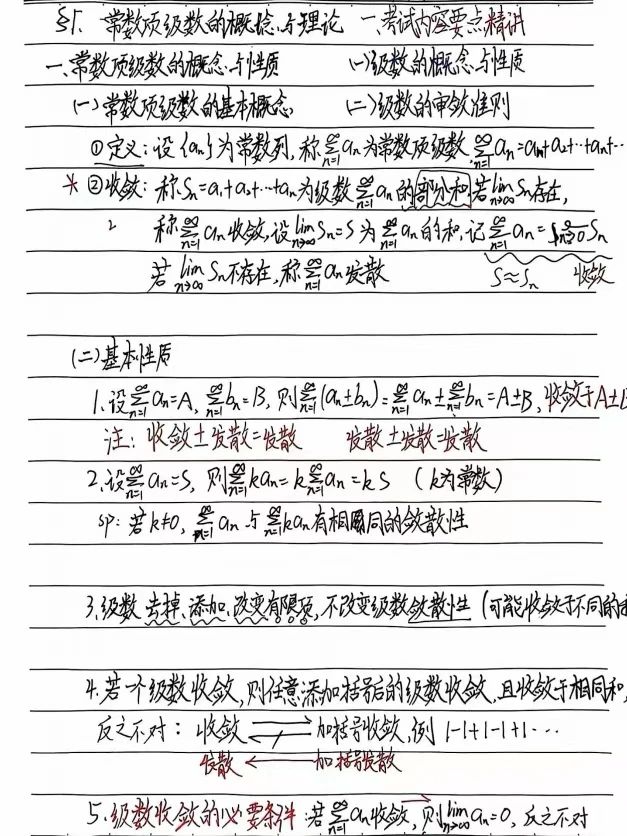 §1. 常数项级数的概念与理论 一、考试内容要点精讲
一、常数项级数的概念与性质 (一)级数的概念与性质
(一)常数项级数的基本概念 (二)级数的审敛准则
①定义:设{aₙ}为常数列,称∑_{n=1}^∞ aₙ为常数项级数 ∑_{n=1}^∞ aₙ=a₁+a₂+…+aₙ+…
* ②收敛:称Sₙ=a₁+a₂+…+aₙ为级数∑_{n=1}^∞ aₙ的部分和,若lim_{n→∞} Sₙ存在,
称∑_{n=1}^∞ aₙ收敛,设lim_{n→∞} Sₙ=S为∑_{n=1}^∞ aₙ的和,记∑_{n=1}^∞ aₙ=
若lim_{n→∞} Sₙ不存在,称∑_{n=1}^∞ aₙ发散 S≈Sₙ 收敛
(二)基本性质
1.设∑_{n=1}^∞ aₙ=A,∑_{n=1}^∞ bₙ=B,则∑_{n=1}^∞(aₙ±bₙ)=∑_{n=1}^∞ aₙ±∑_{n=1}^∞ bₙ=A±B,收敛于A±B
注:收敛±发散=发散 发散±发散=发散
2.设∑_{n=1}^∞ aₙ=S,则∑_{n=1}^∞ kaₙ=k∑_{n=1}^∞ aₙ=kS (k为常数)
sp:若k≠0,∑_{n=1}^∞ aₙ与∑_{n=1}^∞ kaₙ有相同的敛散性
3.级数去掉、添加、改变有限项,不改变级数敛散性(可能收敛于不同的
4.若一个级数收敛,则任意添加括号后的级数收敛,且收敛于相同和,
反之不对: 收敛 ⇌ 加括号收敛,例 1-1+1-1+1…
发散 ← 加括号发散
5.级数收敛的必要条件:若∑_{n=1}^∞ aₙ收敛,则lim_{n→∞} aₙ=0,反之不对